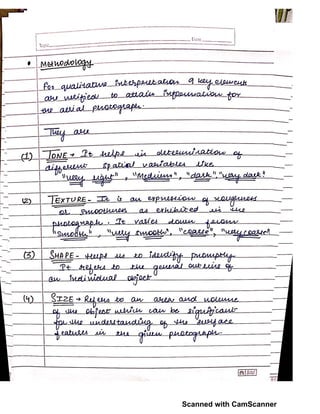 Date
• Methodology
For qualitative interpretation 9 key elements
are utilized to attain information for
the aerial photograph.
They are
(1) TONE → It helps in determination of
different spatial variables like
"very light", "Medium", "dark", "very dark".
(2) TEXTURE - It is an expression of roughness
or smoothness as exhibited in the
photograph. It varies down from
"smooth", "very smooth", "coarse", "very coarse"
(3) SHAPE - Helps us to identify promptly
It refers to the general outline of
an individual object
(4) SIZE → Refers to an area and volume
of the object which can be significant
for the understanding of the surface
features in the given photograph.
Scanned with CamScanner